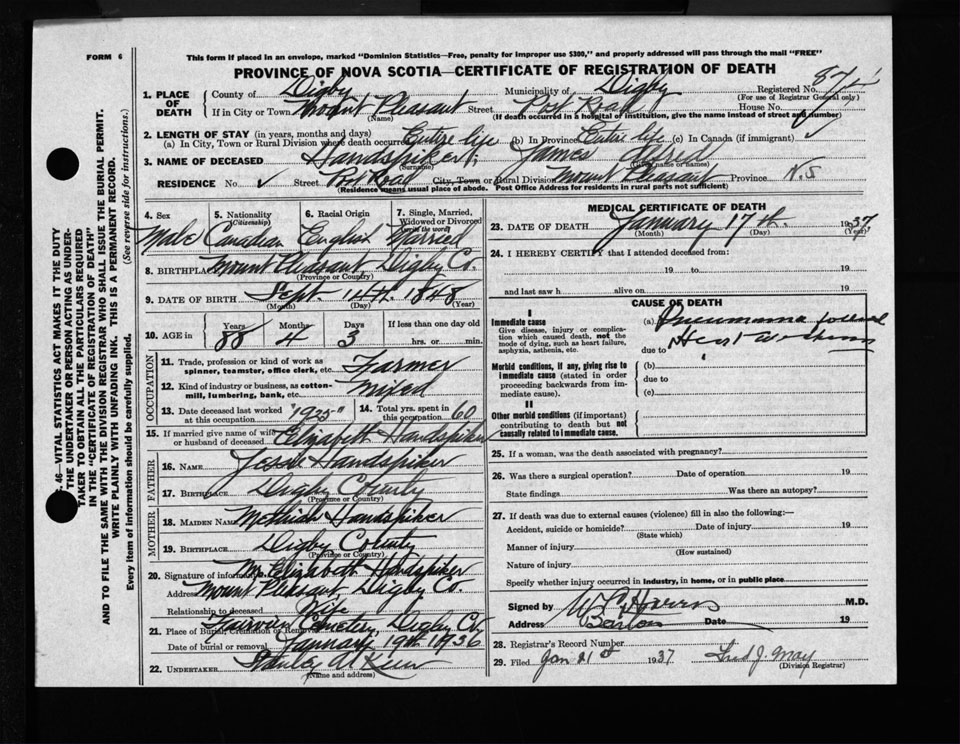 FORM 6
This form if placed in an envelope, marked "Dominion Statistics—Free, penalty for improper use $300," and properly addressed will pass through the mail "FREE"
PROVINCE OF NOVA SCOTIA—CERTIFICATE OF REGISTRATION OF DEATH
1. PLACE OF DEATH
County of Digby Municipality of Digby Registered No.
(For use of Registrar General only)
If in City or Town Mount Pleasant Street Post Road House No.
(Name) (If death occurred in a hospital or institution, give the name instead of street and number)
2. LENGTH OF STAY (in years, months and days)
(a) In City, Town or Rural Division where death occurred Entire life (b) In Province Entire life (c) In Canada (if immigrant)
3. NAME OF DECEASED Handspiker, James
(Surname)
RESIDENCE No. ✓ Street Post Road City, Town or Rural Division Mount Pleasant Province N.S
(Residence means usual place of abode. Post Office Address for residents in rural parts not sufficient)
4. Sex
Male
5. Nationality
(Citizenship)
Canadian
6. Racial Origin
English
7. Single, Married, Widowed or Divorced
(write the word)
Married
8. BIRTHPLACE Mount Pleasant, Digby Co.
(Province or Country)
9. DATE OF BIRTH Sept. 14th. 1848
(Month) (Day) (Year)
10. AGE in
Years Months Days If less than one day old
88 4 3 hrs. or min.
OCCUPATION
11. Trade, profession or kind of work as spinner, teamster, office clerk, etc. Farmer
12. Kind of industry or business, as cotton-mill, lumbering, bank, etc. Mixed
13. Date deceased last worked at this occupation "1925" 14. Total yrs. spent in this occupation 60
15. If married give name of wife or husband of deceased Elizabeth Handspiker
FATHER
16. NAME Jesse Handspiker
17. BIRTHPLACE Digby County
(Province or Country)
MOTHER
18. MAIDEN NAME Handspiker
19. BIRTHPLACE Digby County
(Province or Country)
20. Signature of informant Mrs. Elizabeth Handspiker
Address Mount Pleasant, Digby Co.
Relationship to deceased Wife
21. Place of Burial, Cremation or Removal Fairview Cemetery, Digby Co.
Date of burial or removal January 19th 1936
22. UNDERTAKER Stanley
(Name and address)
MEDICAL CERTIFICATE OF DEATH
23. DATE OF DEATH January 17th. 1937
(Month) (Day) (Year)
24. I HEREBY CERTIFY that I attended deceased from:
19 to 19
and last saw h alive on 19
CAUSE OF DEATH
I
Immediate cause
Give disease, injury or complication which caused death, not the mode of dying, such as heart failure, asphyxia, asthenia, etc.
(a) Pneumonia
due to Heart
Morbid conditions, if any, giving rise to immediate cause (stated in order proceeding backwards from immediate cause).
(b)
due to
(c)
II
Other morbid conditions (if important) contributing to death but not causally related to immediate cause.
25. If a woman, was the death associated with pregnancy?
26. Was there a surgical operation? Date of operation 19
State findings Was there an autopsy?
27. If death was due to external causes (violence) fill in also the following:—
Accident, suicide or homicide? Date of injury 19
(State which)
Manner of injury
(How sustained)
Nature of injury
Specify whether injury occurred in industry, in home, or in public place
Signed by Harris M.D.
Address Barton Date 19
28. Registrar's Record Number
29. Filed Jan 21st 1937 Fred J. May
(Division Registrar)
46—VITAL STATISTICS ACT MAKES IT THE DUTY
THE UNDERTAKER OR PERSON ACTING AS UNDER-
TAKER TO OBTAIN ALL THE PARTICULARS REQUIRED
IN THE "CERTIFICATE OF REGISTRATION OF DEATH"
AND TO FILE THE SAME WITH THE DIVISION REGISTRAR WHO SHALL ISSUE THE BURIAL PERMIT.
WRITE PLAINLY WITH UNFADING INK. THIS IS A PERMANENT RECORD.
Every item of information should be carefully supplied. (See reverse side for instructions.)